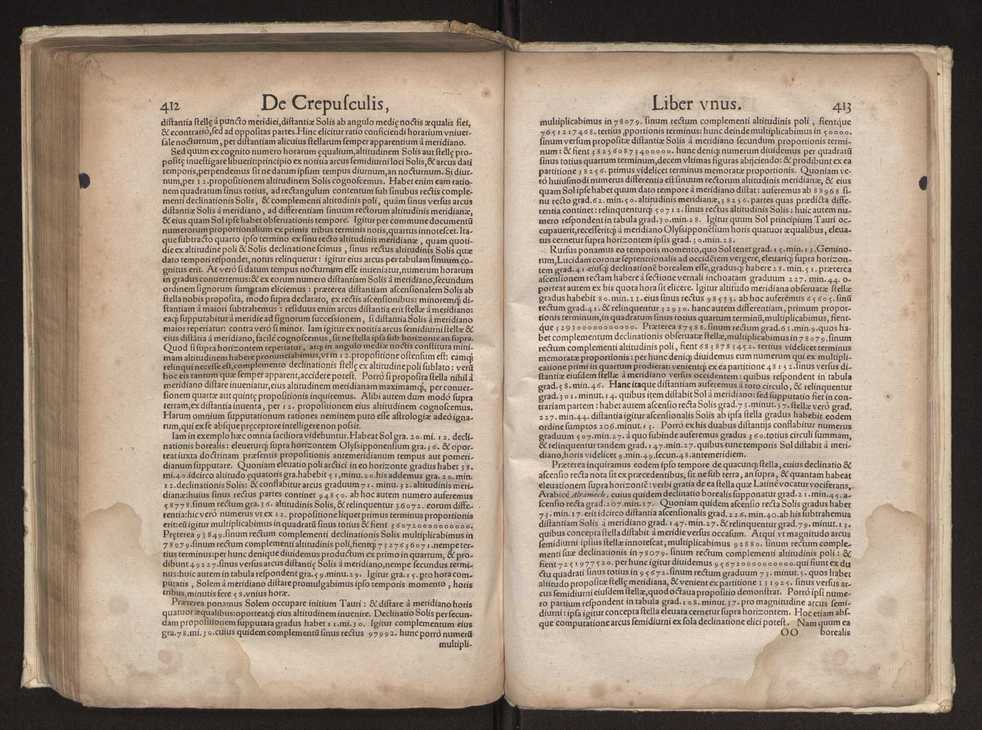 412 De Crepuſculis,
diſtantia ſtellę à puncto meridiei, diſtantiæ Solis ab angulo medię noctis æqualis fiet,
& econtrariò, ſed ad oppoſitas partes. Hinc elicitur ratio conficiendi horarium vniuer-
ſale nocturnum, per diſtantiam alicuius ſtellarum ſemper apparentium à meridiano.
Sed quum ex cognito numero horarum ęqualium, altitudinem Solis aut ſtellę pro-
poſitę inueſtigare libuerit: principio ex notitia arcus ſemidiurni loci Solis, & arcus dati
temporis, perpendemus ſit ne datum ipſum tempus diurnum, an nocturnum. Si diur-
num, per 12. propoſitionem altitudinem Solis cognoſcemus. Habet enim eam ratio-
nem quadratum ſinus totius, ad rectangulum contentum ſub ſinubus rectis comple-
menti declinationis Solis, & complementi altitudinis poli, quàm ſinus verſus arcus
diſtantiæ Solis à meridiano, ad differentiam ſinuum rectorum altitudinis meridianæ,
& eius quam Sol ipſe habet obſeruationis tempore. Igitur per commune documentū
numerorum proportionalium ex primis tribus terminis notis, quartus innoteſcet. Ita-
que ſubtracto quarto ipſo termino ex ſinu recto altitudinis meridianæ, quam quoti-
die ex altitudine poli & Solis declinatione ſcimus, ſinus rectus altitudinis Solis quæ
dato tempori reſpondet, notus relinquetur: igitur eius arcus per tabulam ſinuum co-
gnitus erit. At verò ſi datum tempus nocturnum eſſe inueniatur, numerum horarum
in gradus conuertemus: & ex eorum numero diſtantiam Solis à meridiano, ſecundum
ordinem ſignorum ſumptam eliciemus: præterea diſtantiam aſcenſionalem Solis ab
ſtella nobis propoſita, modo ſupra declarato, ex rectis aſcenſionibus: minoremq́; di-
ſtantiam à maiori ſubtrahemus: reſiduus enim arcus diſtantia erit ſtellæ à meridiano:
eaq́; ſupputabitur à meridie ad ſignorum ſucceſſionem, ſi diſtantia Solis à meridiano
maior reperiatur: contra verò ſi minor. Iam igitur ex notitia arcus ſemidiurni ſtellæ &
eius diſtantia à meridiano, facilè cognoſcemus, ſit ne ſtella ipſa ſub horizonte an ſupra.
Quod ſi ſupra horizontem reperiatur, atq; in angulo mediæ noctis conſtituta mini-
mam altitudinem habere pronunciabimus, vt in 12. propoſitione oſtenſum eſt: eamq́;
relinqui neceſſe eſt, complemento declinationis ſtellę ex altitudine poli ſublato: verū
hoc eis tantum quæ ſemper apparent, accidere poteſt. Porrò ſi propoſita ſtella nihil à
meridiano diſtare inueniatur, eius altitudinem meridianam maximamq́;, per conuer-
ſionem quartæ aut quintę propoſitionis inquiremus. Alibi autem dum modò ſupra
terram, ex diſtantia inuenta, per 12. propoſitionem eius altitudinem cognoſcemus.
Harum omnium ſupputationum rationes neminem puto eſſe aſtrologiæ adeò igna-
rum, qui ex ſe abſque pręceptore intelligere non poſsit.
Iam in exemplo hæc omnia faciliora videbuntur. Habeat Sol gra. 20. mi. 12. decli-
nationis borealis: eleueturq́; ſupra horizontem Olyſipponenſium gra. 36. & opor-
teat iuxta doctrinam præſentis propoſitionis antemeridianum tempus aut pomeri-
dianum ſupputare. Quoniam eleuatio poli arctici in eo horizonte gradus habet 38.
mi. 40. idcirco altitudo ęquatoris gra. habebit 51. minu. 20. his addemus gra. 20. min.
12. declinationis Solis: & conflabitur arcus graduum 71. minu. 32. altitudinis meri-
dianæ: huius ſinus rectus partes continet 94850. ab hoc autem numero auferemus
58778. ſinum rectum gra. 36. altitudinis Solis, & relinquetur 36072. eorum diffe-
rentia: hic verò numerus vt ex 12. propoſitione liquet primus terminus proportionis
erit: eū igitur multiplicabimus in quadratū ſinus totius & fient 360720000000000.
Pręterea 93849. ſinum rectum complementi declinationis Solis multiplicabimus in
78079. ſinum rectum complementi altitudinis poli, fientq́; 7327636071. nempe ter-
tius terminus: per hunc denique diuidemus productum ex primo in quartum, & pro-
dibunt 49227. ſinus verſus arcus diſtantię Solis à meridiano, nempe ſecundus termi-
nus: huic autem in tabula reſpondent gra. 59. minu. 29. Igitur gra. 15. pro hora com-
putata, Solem à meridiano diſtare promulgabimus ipſo temporis momento, horis
tribus, minutis ferè 58. vnius horæ.
Præterea ponamus Solem occupare initium Tauri: & diſtare à meridiano horis
quatuor æqualibus: oporteatq́; eius altitudinem inuenire. Declinatio Solis per ſecun-
dam propoſitionem ſupputata gradus habet 11. mi. 30. Igitur complementum eius
gra. 78. mi. 30. cuius quidem complementū ſinus rectus 97992. hunc porrò numerū
multipli-
Liber vnus. 413
multiplicabimus in 78079. ſinum rectum complementi altitudinis poli, fientque
7651217468. tertius, pportionis terminus: hunc deinde multiplicabimus in 50000.
ſinum verſum propoſitæ diſtantiæ Solis à meridiano ſecundum proportionis termi-
num: & fient 382560873400000. hunc deniq; numerum diuidemus per quadratū
ſinus totius quartum terminum, decem vltimas figuras abijciendo: & prodibunt ex ea
partitione 38256. primus videlicet terminus memoratæ proportionis. Quoniam ve-
rò huiuſmodi numerus differentia eſt ſinuum rectorum altitudinis meridianæ, & eius
quam Sol ipſe habet quum dato tempore à meridiano diſtat: auferemus ab 88968 ſi-
nu recto grad. 62. min. 50. altitudinis meridianæ, 38256. partes quas prædicta diffe-
rentia continet: relinquenturq́; 50712. ſinus rectus altitudinis Solis: huic autem nu-
mero reſpondent in tabula grad. 30. min. 28. Igitur quum Sol principium Tauri oc-
cupauerit, receſſeritq́; à meridiano Olyſipponenſium horis quatuor æqualibus, eleua-
tus cernetur ſupra horizontem ipſis grad. 30. min. 28.
Rurſus ponamus eo temporis momento, quo Sol tenet grad. 15. min. 12. Gemino-
rum, Lucidam coronæ ſeptentrionalis ad occidētem vergere, eleuariq́; ſupra horizon-
tem grad. 41. eiuſq́; declinationē borealem eſſe, gradusq́; habere 28. min. 51. præterea
aſcenſionem rectam habere à ſectione vernali inchoatam graduum 227. min. 44. o-
porteat autem ex his quota hora ſit elicere. Igitur altitudo meridiana obſeruatæ ſtellæ
gradus habebit 80. min. 11. eius ſinus rectus 98535. ab hoc auferemus 65605. ſinū
rectum grad. 41. & relinquentur 32930. hanc autem differentiam, primum propor-
tionis terminum, in quadratum ſinus totius quartum terminū, multiplicabimus, fient-
que 329300000000000. Præterea 87588. ſinum rectum grad. 61. min. 9. quos ha-
bet complementum declinationis obſeruatæ ſtellæ, multiplicabimus in 78079. ſinum
rectum complementi altitudinis poli, fient 6838783452. tertius videlicet terminus
memoratæ proportionis: per hunc deniq; diuidemus eum numerum qui ex multipli-
catione primi in quartum prodierat: venientq́; ex ea partitione 48152. ſinus verſus di-
ſtantiæ eiuſdem ſtellæ à meridiano verſus occidentem: quibus reſpondent in tabula
grad. 58. min. 46. Hanc itaque diſtantiam auferemus à toto circulo, & relinquentur
grad. 301. minut. 14. quibus item diſtabit Sol à meridiano: ſed ſupputatio fiet in con-
trariam partem: habet autem aſcenſio recta Solis grad. 73. minut. 37. ſtellæ verò grad.
227. min. 44. diſtantia igitur aſcenſionalis Solis ab ipſa ſtella gradus habebit eodem
ordine ſumptos 206. minut. 13. Porrò ex his duabus diſtantijs conflabitur numerus
graduum 507. min. 27. à quo ſubinde auferemus gradus 360. totius circuli ſummam,
& relinquentur tandem grad. 147. min. 27. quibus tunc temporis Sol diſtabit à meri-
diano, horis videlicet 9. min. 49. ſecun. 48. antemeridiem.
Præterea inquiramus eodem ipſo tempore de quacunq; ſtella, cuius declinatio &
aſcenſio recta nota ſit ex præcedentibus, ſit ne ſub terra, an ſupra, & quantam habeat
eleuationem ſupra horizontē: verbi gratia de ea ſtella quæ Latinè vocatur vociferans,
Arabicè Alramech, cuius quidem declinatio borealis ſupponatur grad. 21. min. 45. a-
ſcenſio recta grad. 207. min. 17. Quoniam quidem aſcenſio recta Solis gradus habet
73. min. 37. erit idcirco diſtantia aſcenſionalis grad. 226. min. 40. ab his ſubtrahemus
diſtantiam Solis à meridiano grad. 147. min. 27. & relinquentur grad. 79. minut. 13.
quibus concepta ſtella diſtabit à meridie verſus occaſum. Atqui vt magnitudo arcus
ſemidiurni ipſius ſtellæ innoteſcat, multiplicabimus 92880. ſinum rectum comple-
menti ſuæ declinationis in 78079. ſinum rectum complementi altitudinis poli: &
fient 7251977520. per hunc igitur diuidemus 956720000000000. qui fiunt ex du-
ctu quadrati ſinus totius in 95672. ſinum rectum graduum 73. minut. 5. quos habet
altitudo propoſitæ ſtellę meridiana, & venient ex partitione 131925. ſinus verſus ar-
cus ſemidiurni eiuſdem ſtellæ, quod octaua propoſitio demonſtrat. Porrò ipſi nume-
ro partium reſpondent in tabula grad. 108. minut. 37. pro magnitudine arcus ſemi-
diurni: ipſa igitur concepta ſtella eleuata cernetur ſupra horizontem. Hoc etiam abſ-
que computatione arcus ſemidiurni ex ſola declinatione elici poteſt. Nam quum ea
OO borealis